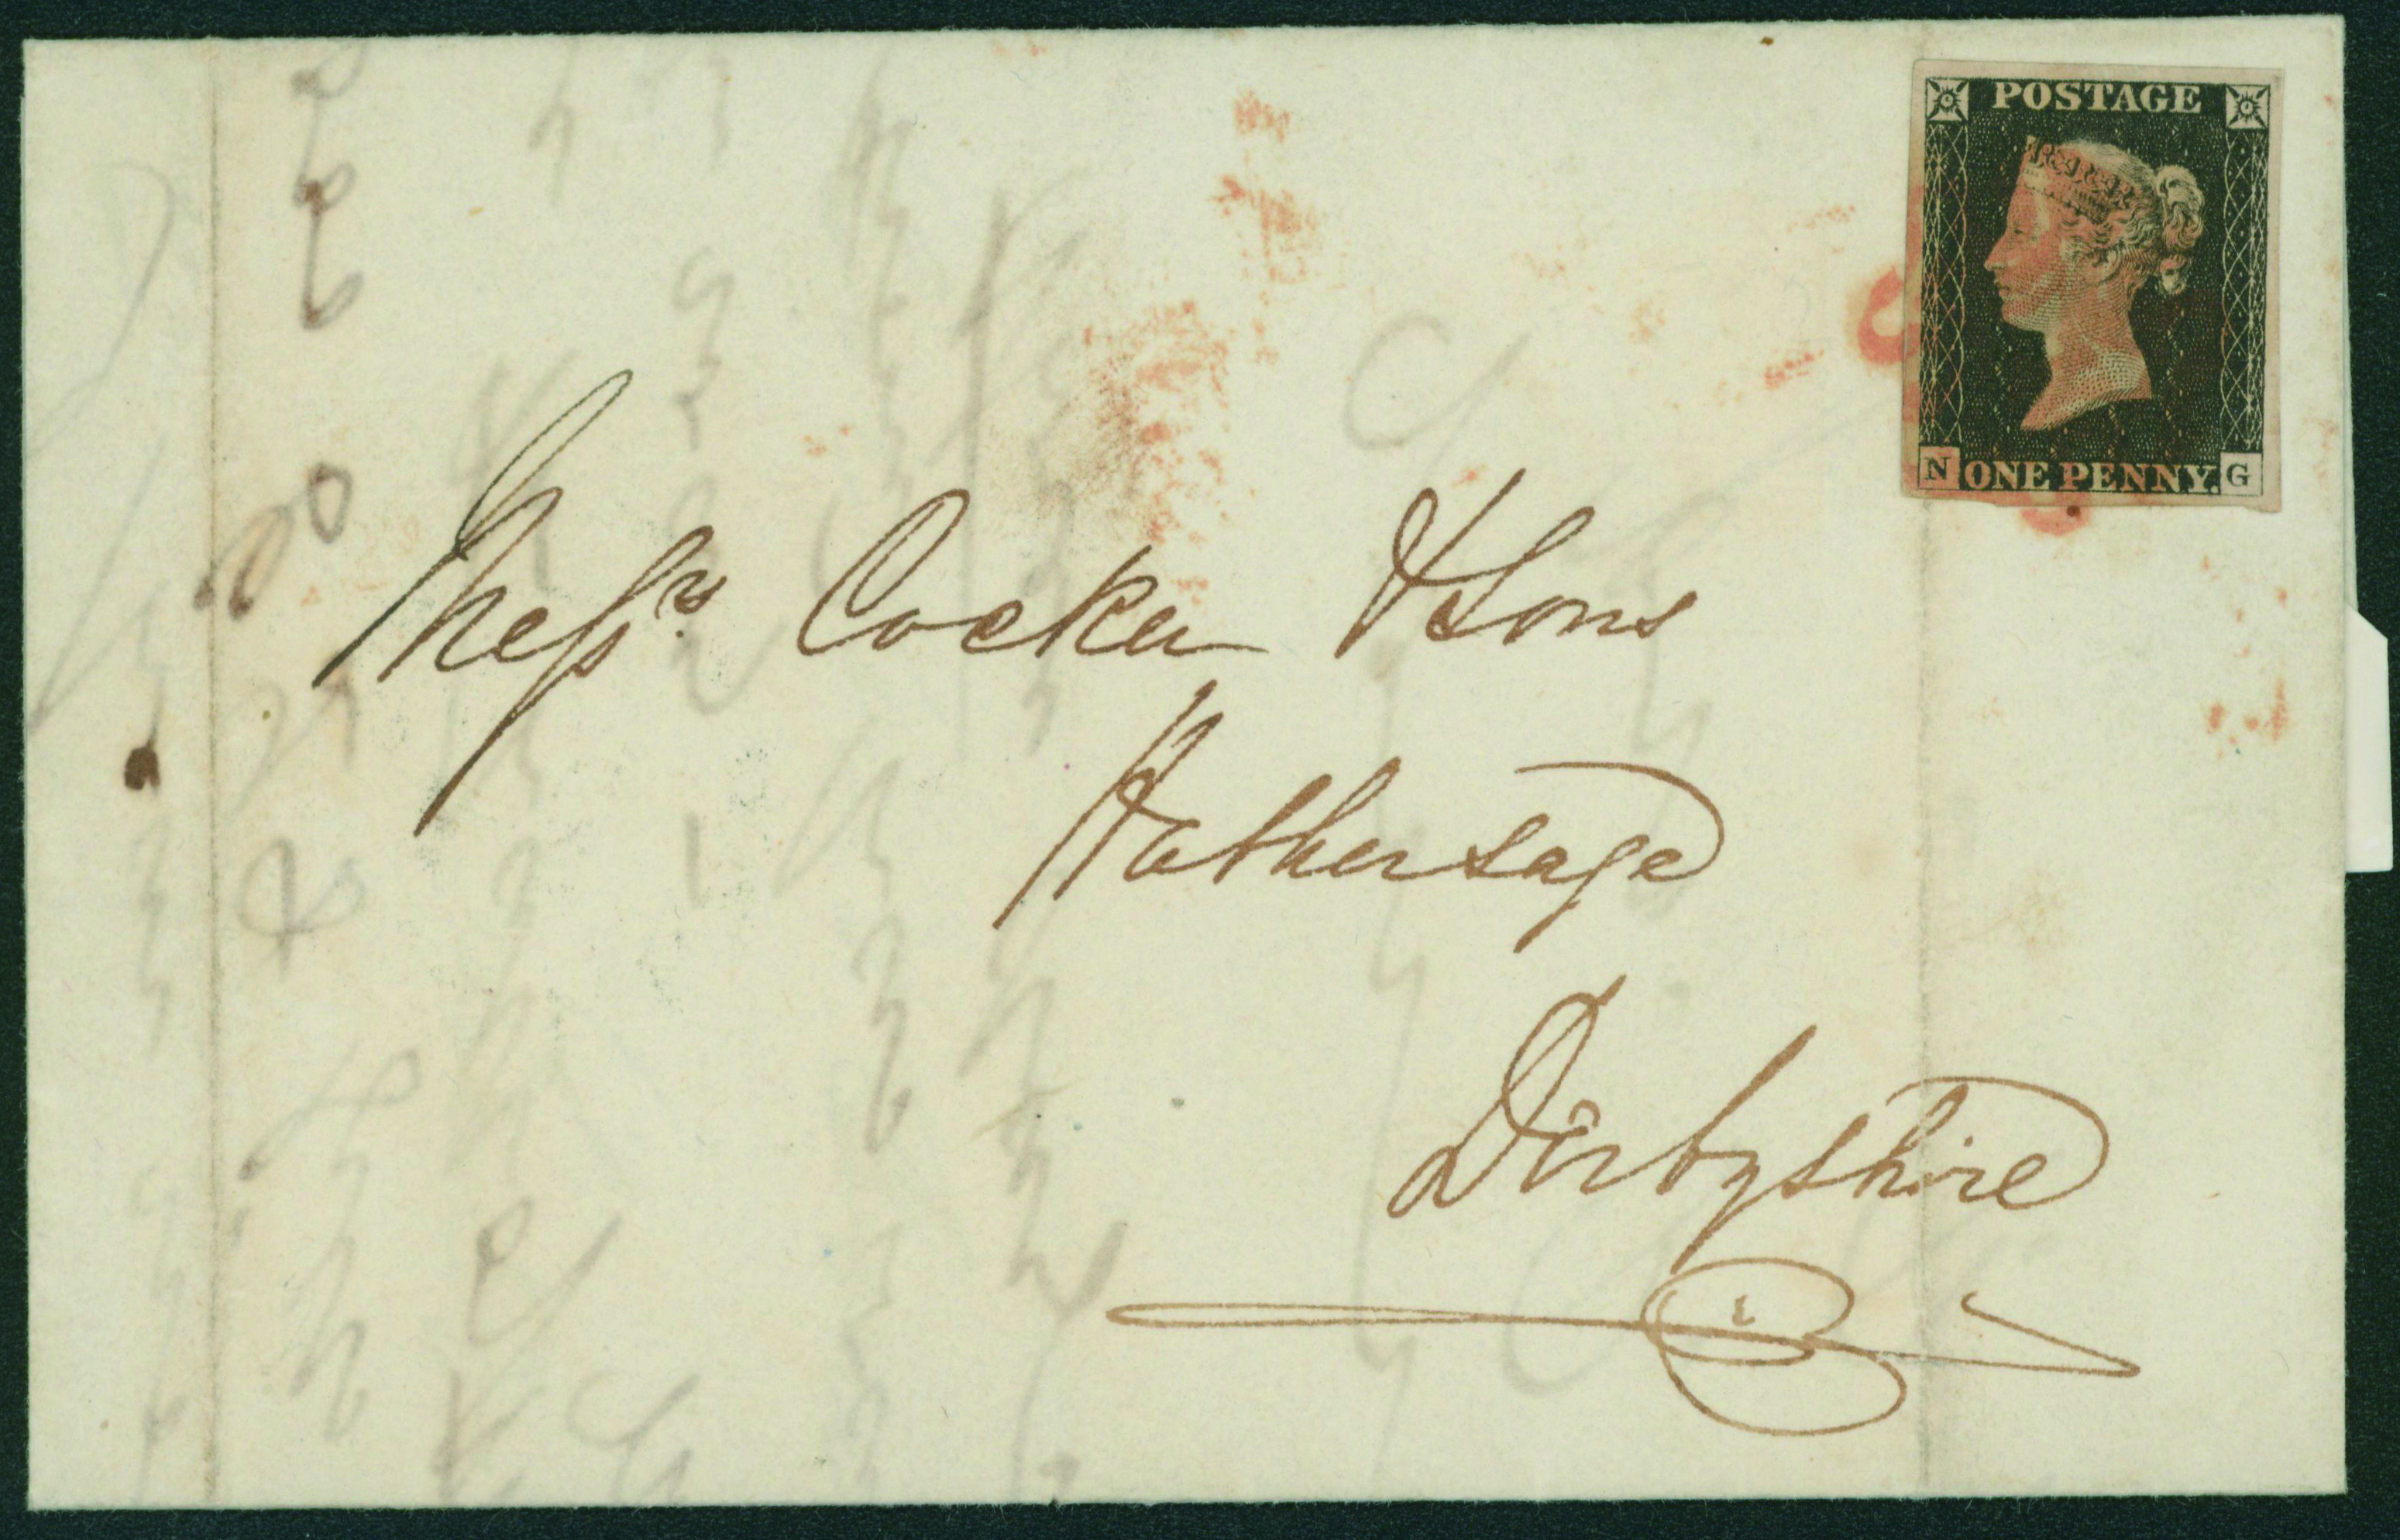 POSTAGE
N ONE PENNY. G
Messrs Cocker & Sons
Hathersage
Derbyshire